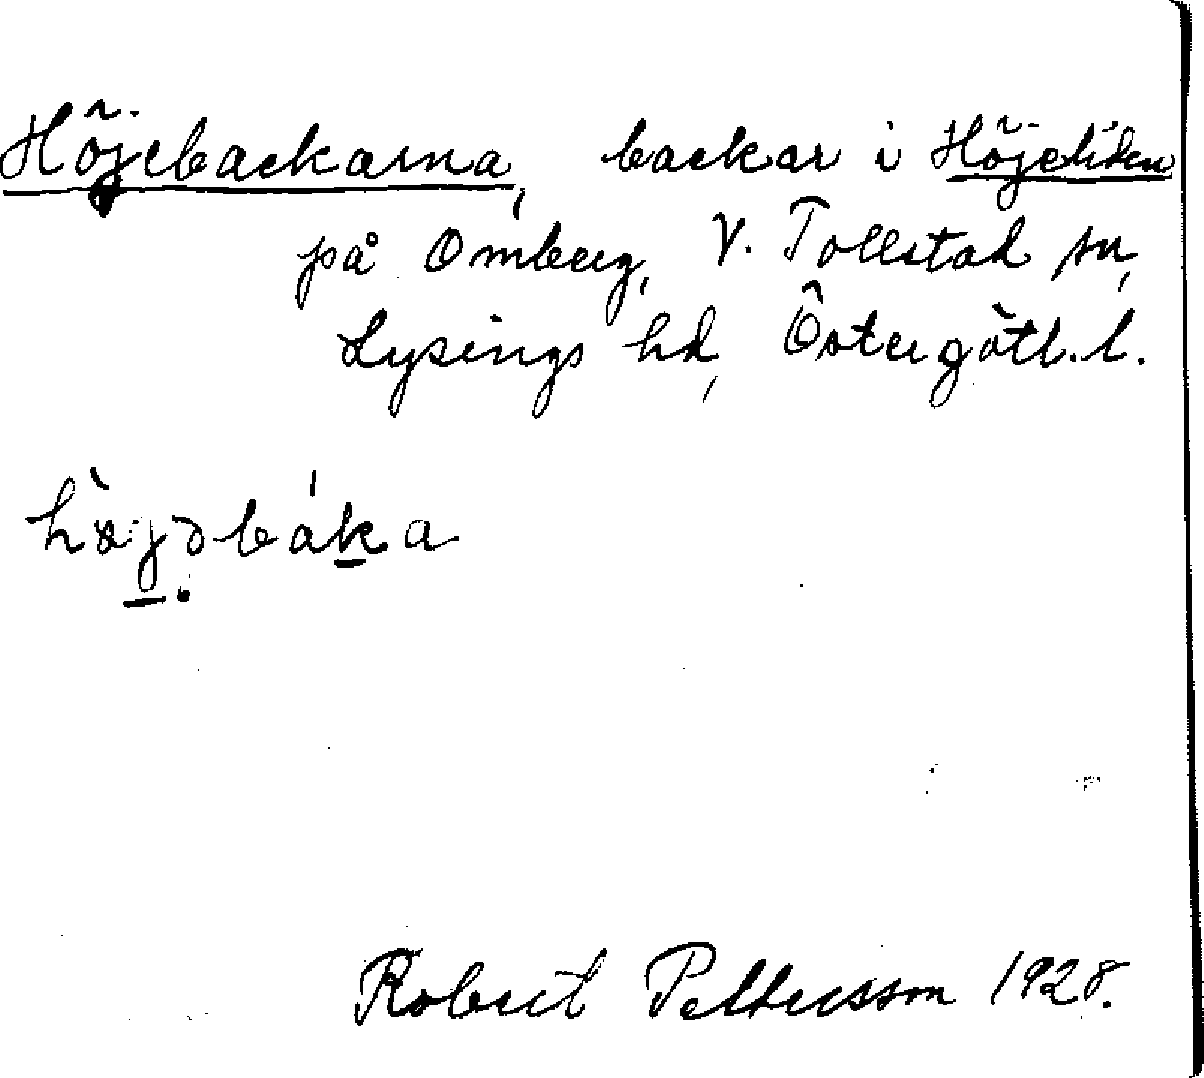 Höjebackarna, backar i Höjeliden
på Omberg, V. Tollstad sn,
Lysings hd, Östergötl. l.
Robert Pettersson 1928.